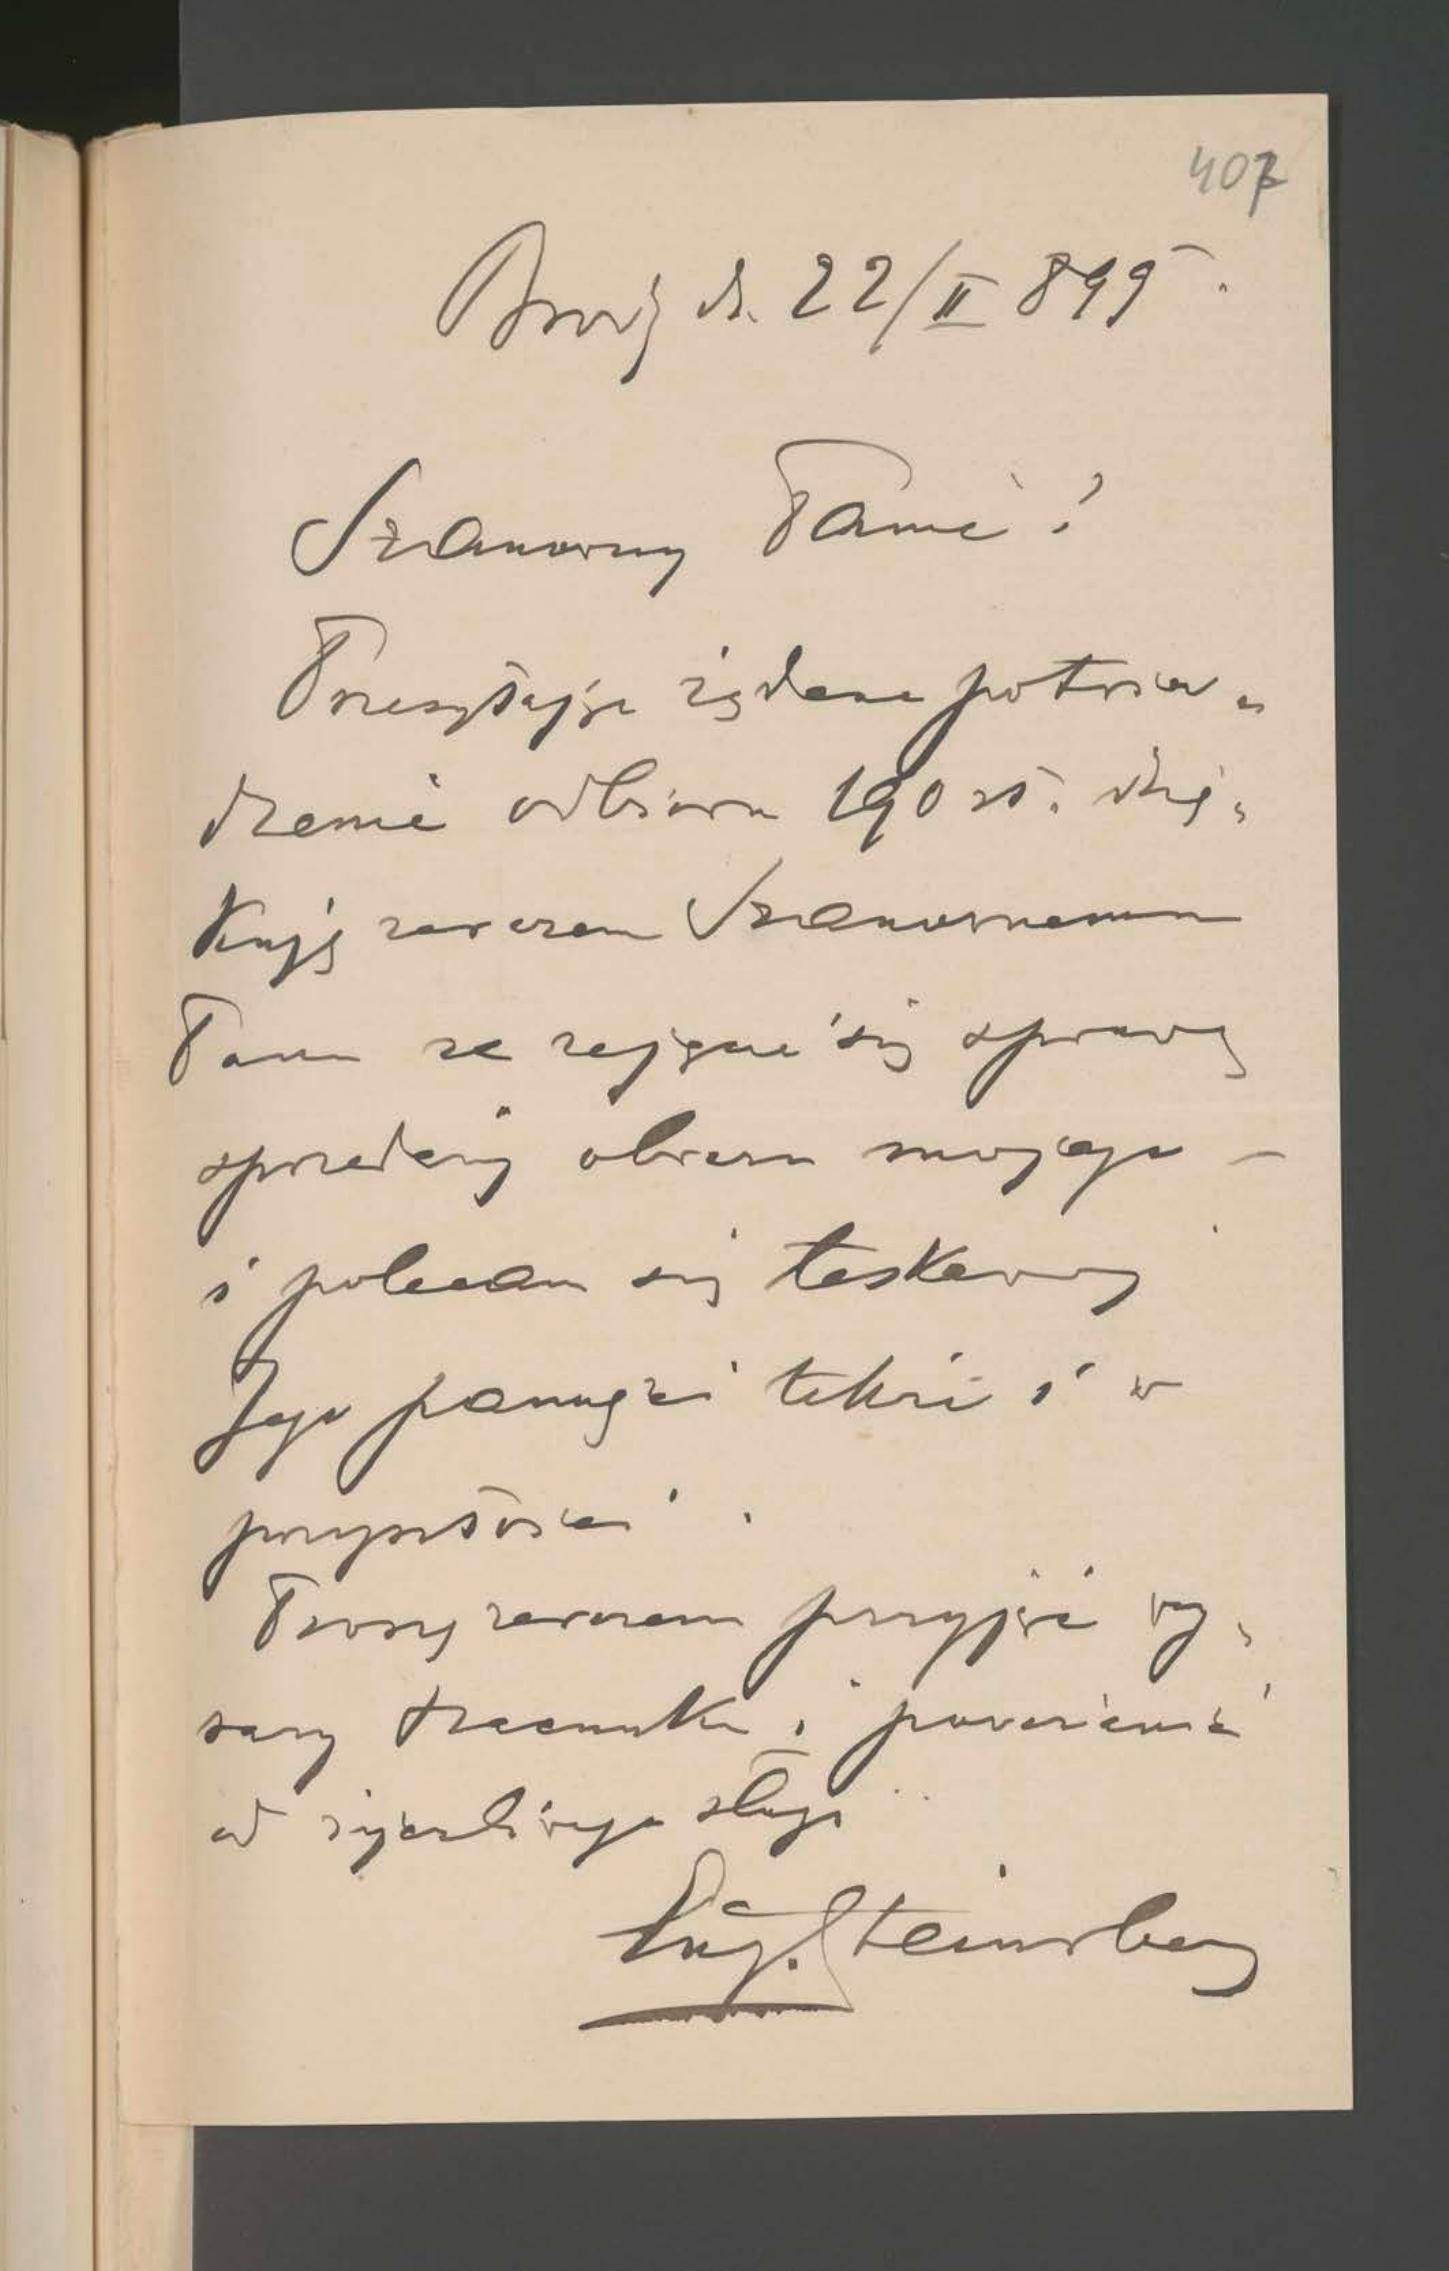 407
d. 22/II 899.
Szanowny Panie!
Przesyłając żądane potwier„
dzenie odbioru 190 zł. dzię„
kuję zarazem Szanownemu
Panu za zajęcie się sprawą
sprzedaży obrazu mojego –
i polecam się łaskawej
Jego pamięci także i w
przyszłości.
Proszę zarazem przyjąć wy„
razy szacunku i poważania
od życzliwego sługi
Eug. Steinsberg